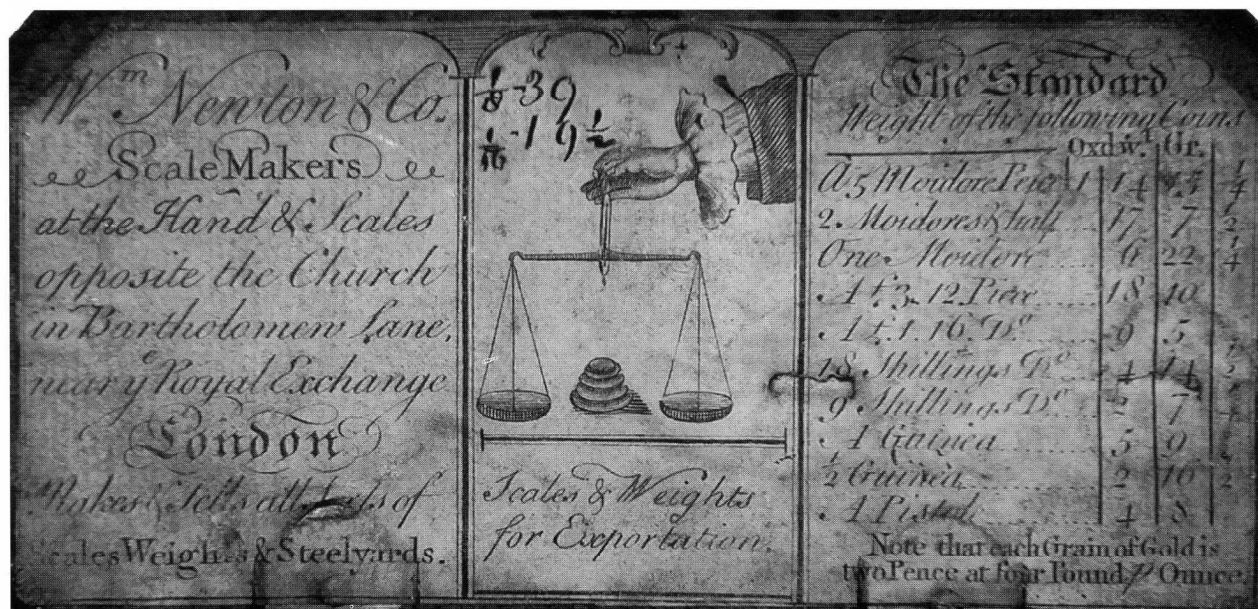 Wm Newton & Co.
Scale Makers
at the Hand & Scales
opposite the Church
in Bartholomew Lane,
near ye Royal Exchange
London
Makes & Sells all of
Scales Weights & Steelyards.
1/8 - 39
1/16 - 19 1/2
Scales & Weights
for Exportation.
The Standard
Weight of the following Coins
Oz dwt. Gr.
A 5 Moidore Piece 1 14 1/4
2 Moidores & half 17 7 1/2
One Moidore 6 22 1/4
A £3. 12 Piece 18 10
A £1. 16. Do 9 5
18 Shillings Do 4 14 1/2
9 Shillings Do 2 7
A Guinea 5 9
1/2 Guinea 2 10 1/2
A Pistole 4 8
Note that each Grain of Gold is
two Pence at four Pound Ounce.